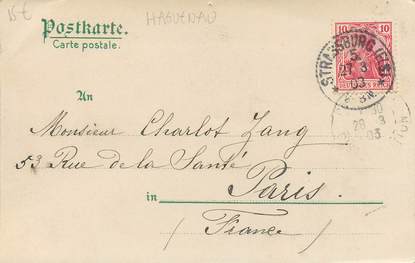 15€
HAGUENAU
Postkarte.
Carte postale.
10 10
STRASSBURG (ELS)
5.
27 3
03
DEUTSCHES REICH
28 3
03
An
Monsieur Charlot Zang
53 Rue de la Santé
in Paris.
(France)